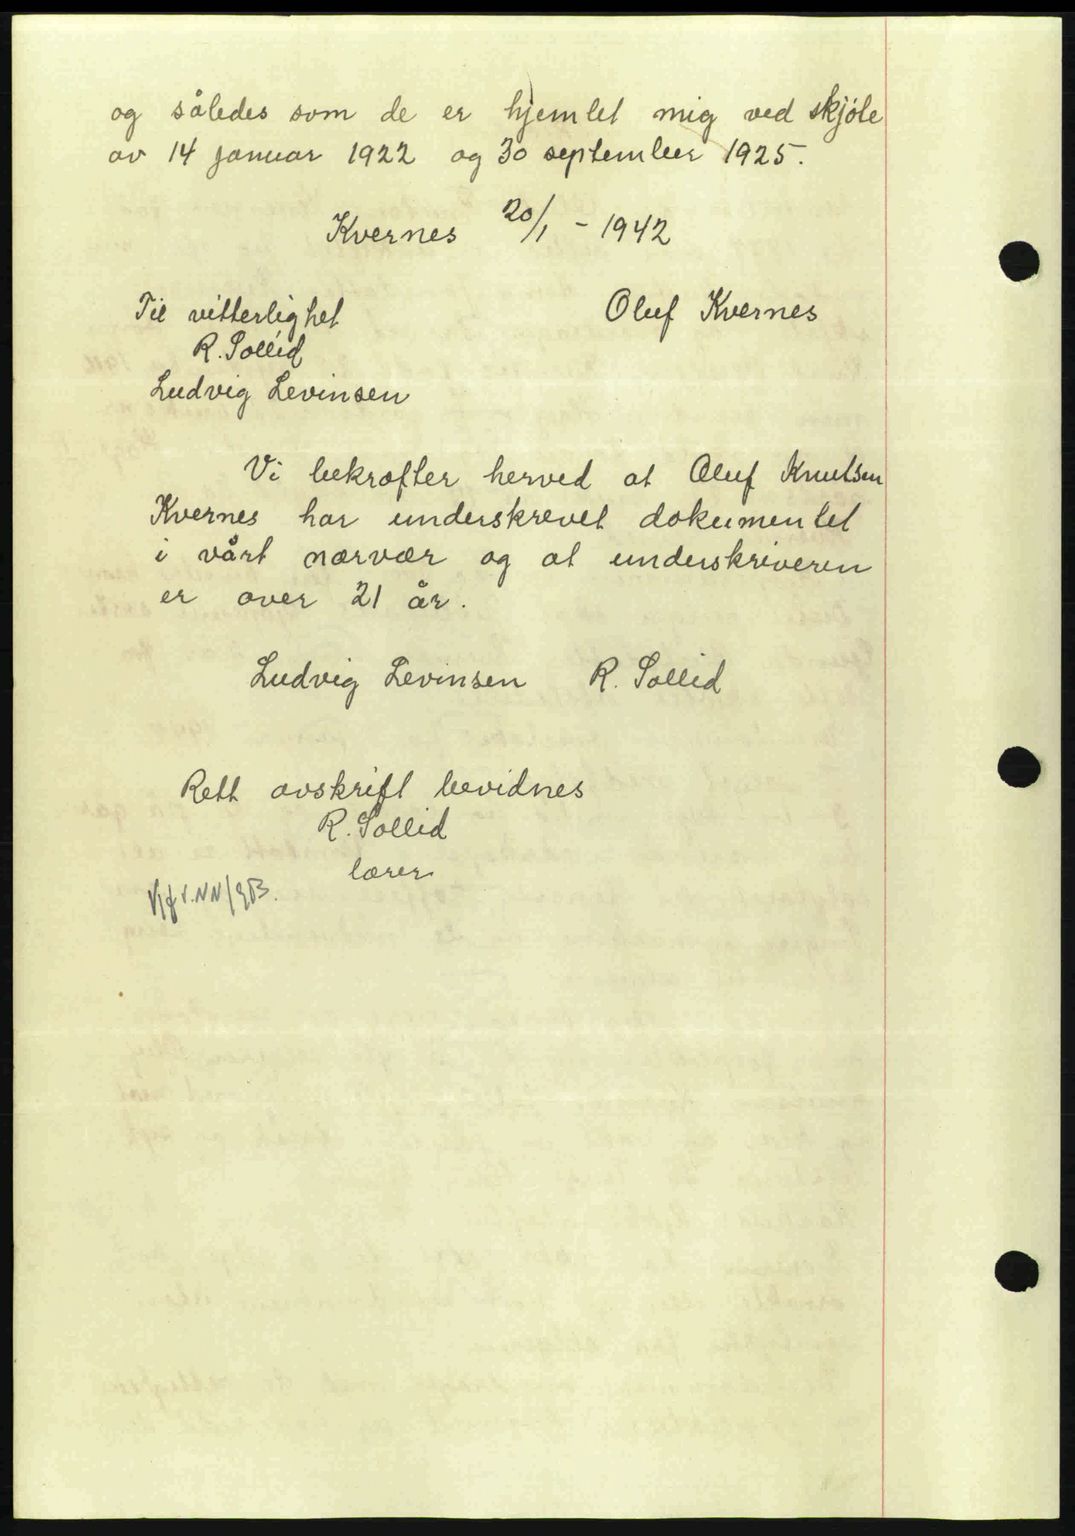 og således som de er hjemlet mig ved skjöte
av 14 januar 1922 og 30 september 1925.
Kvernes 20/1 - 1942
Til vitterlighet
Oluf Kvernes
R. Sollid
Ludvig Levinsen
Vi bekræfter herved at Oluf Knutsen
Kvernes har underskrevet dokumentet
i vårt nærvær og at underskriveren
er over 21 år.
Ludvig Levinsen R. Sollid
Rett avskrift bevidnes
R. Sollid
lærer